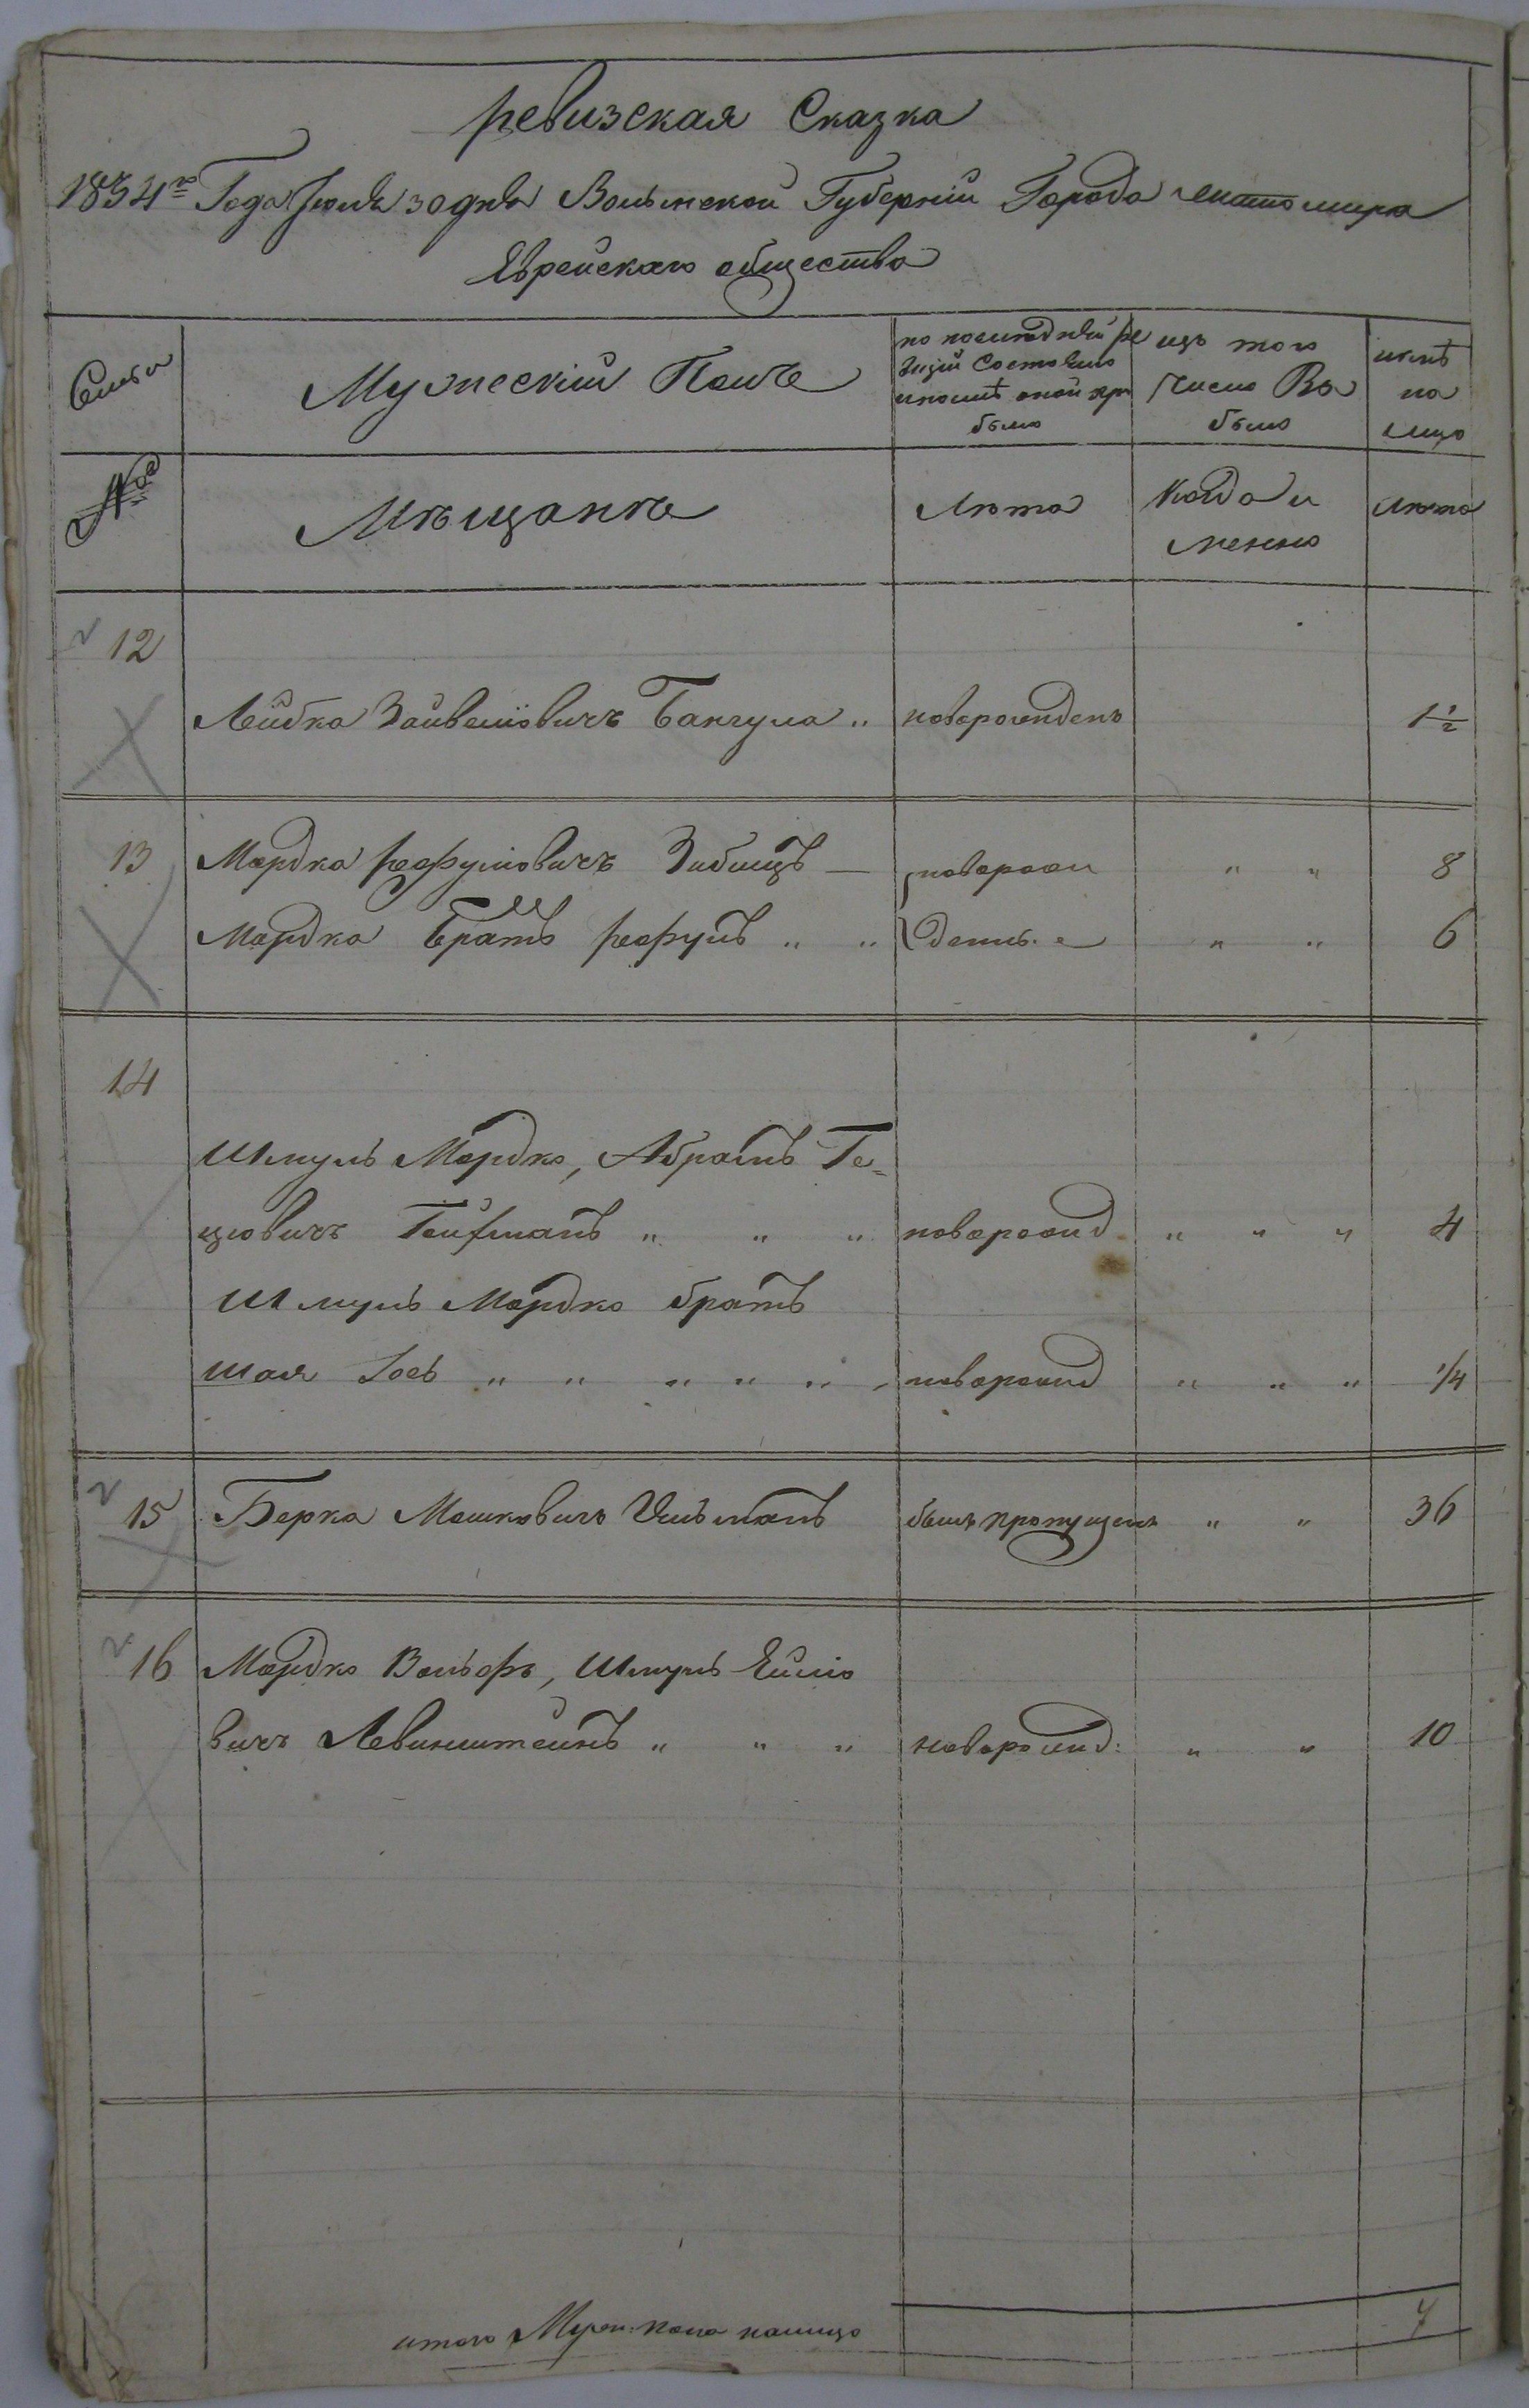 ревизская Сказка
1834го Года Июля 30 дня Волынской Губернии Города Житомира
Еврейского общества
Семьи
Мужеский Полъ
по последней ре
визии состояло
и после оной при
было
изъ того
числа Вы
было
ныне
на
лицо
№
Мещане
Лета
Когда и
менно
Лета
12
Лейбка Зайвеліовичъ Банчула „ новорожденъ 1 1/2
13 Мордко Рефуліовичъ — новорож „ „ 8
Мордка братъ Рефулъ „ „ денны „ „ 6
14
Шмуль Мордко, Абрамъ Ге=
цовичъ Гойфманъ „ „ „ новорожд „ „ „ 4
Шмуль Мордко братъ
Шая Іосъ „ „ „ „ „ новорожд „ „ „ 1/4
15 Берка Мошковичъ былъ пропущенъ „ „ 36
16 Мордко Вольфъ, Шмуль Ейліо
вичъ Левинштейнъ „ „ „ новорожд: „ „ 10
итого Муж: пола налицо 7